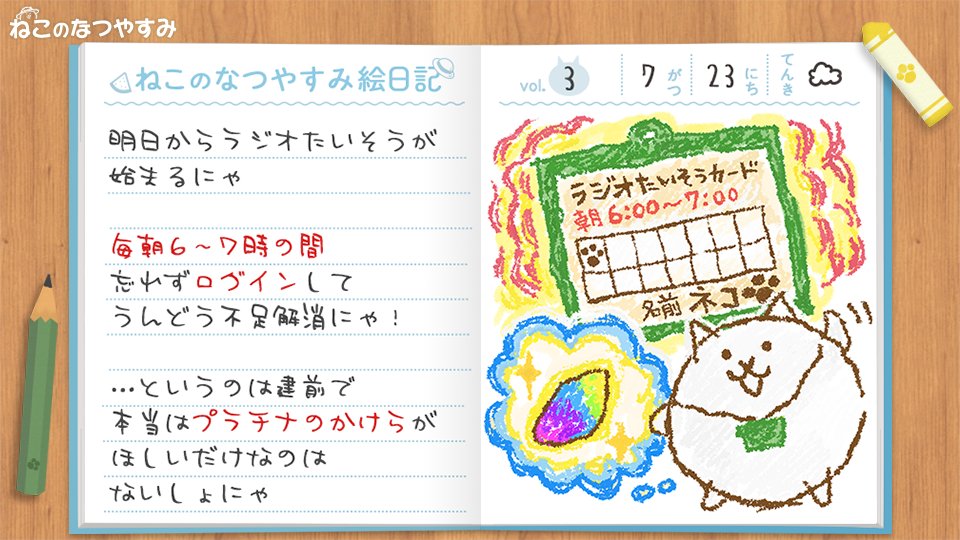 ねこのなつやすみ
ねこのなつやすみ絵日記
明日からラジオたいそうが
始まるにゃ
毎朝6～7時の間
忘れずログインして
うんどう不足解消にゃ！
…というのは建前で
本当はプラチナのかけらが
ほしいだけなのは
ないしょにゃ
vol. 3 7がつ 23にち てんき
ラジオたいそうカード
朝6:00～7:00
名前 ネコ